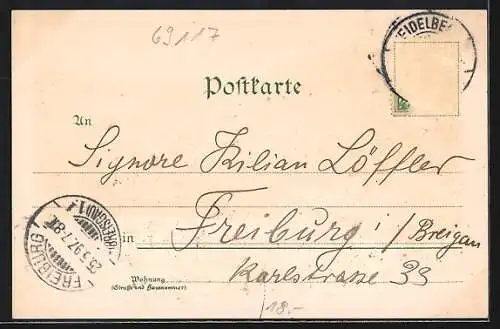 69117
HEIDELBE
Postkarte
An
Signore Kilian Löffler
in Freiburg i/Breigau
Karlstrasse 33
Wohnung
(Straße und Hausnummer)
FREIBURG
25.3.97.7-8
18.-